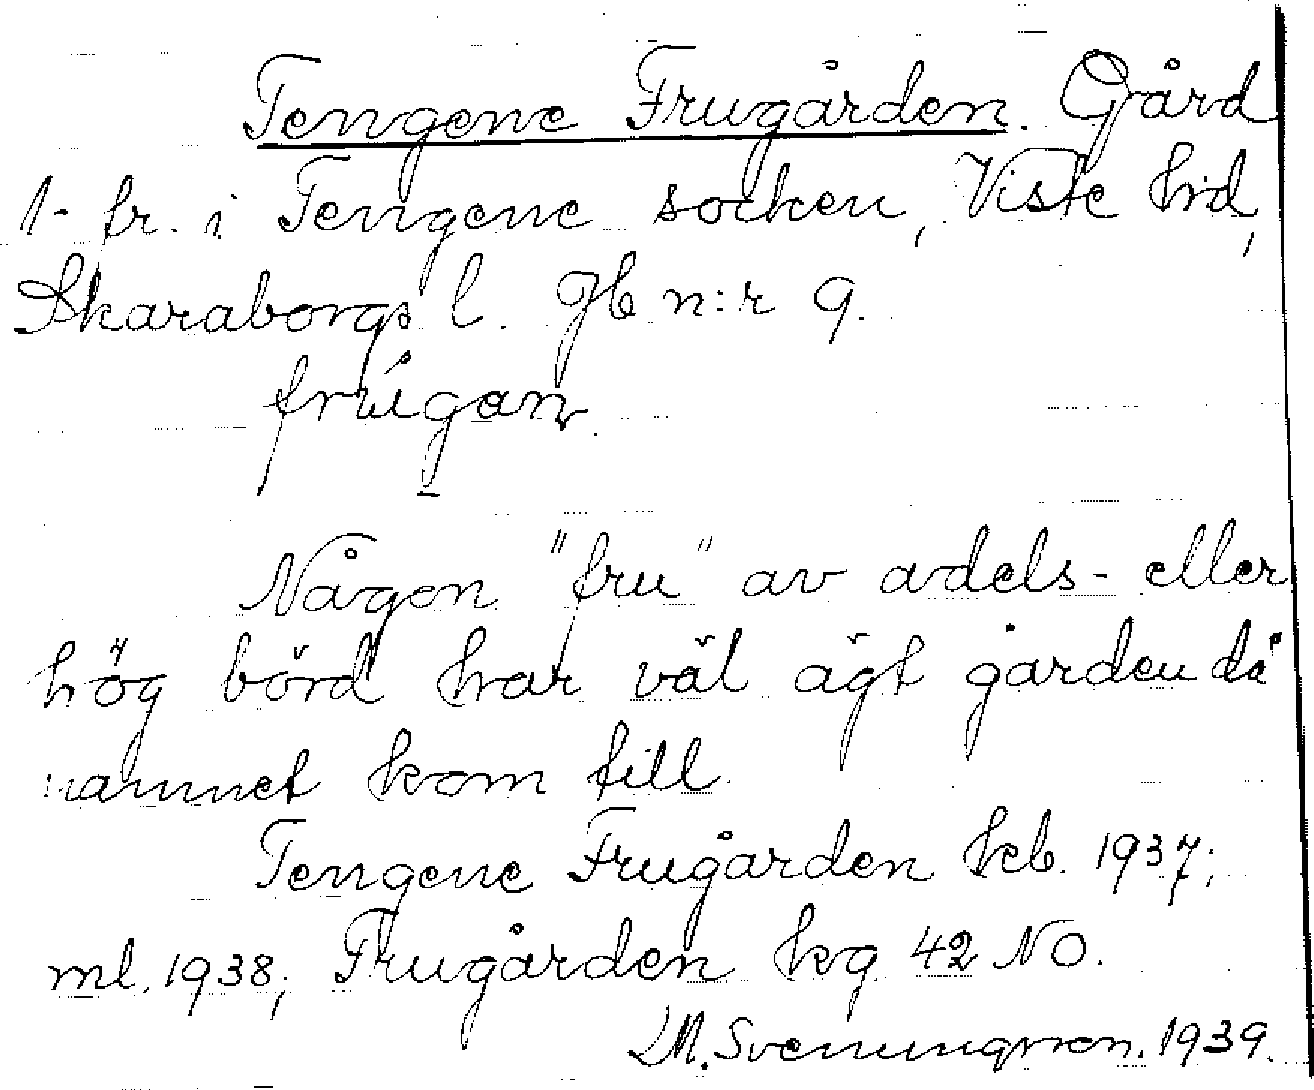 Tengene Frugården. Gård
1- fr. i Tengene socken, Viste hd,
Skaraborgs l. Jb n:r 9.
frúgan
Någon "fru" av adels- eller
hög börd har väl ägt gården då
namnet kom till.
Tengene Frugården kb. 1937;
ml. 1938; Frugården kg 42 NO.
M. Svenungsson. 1939.